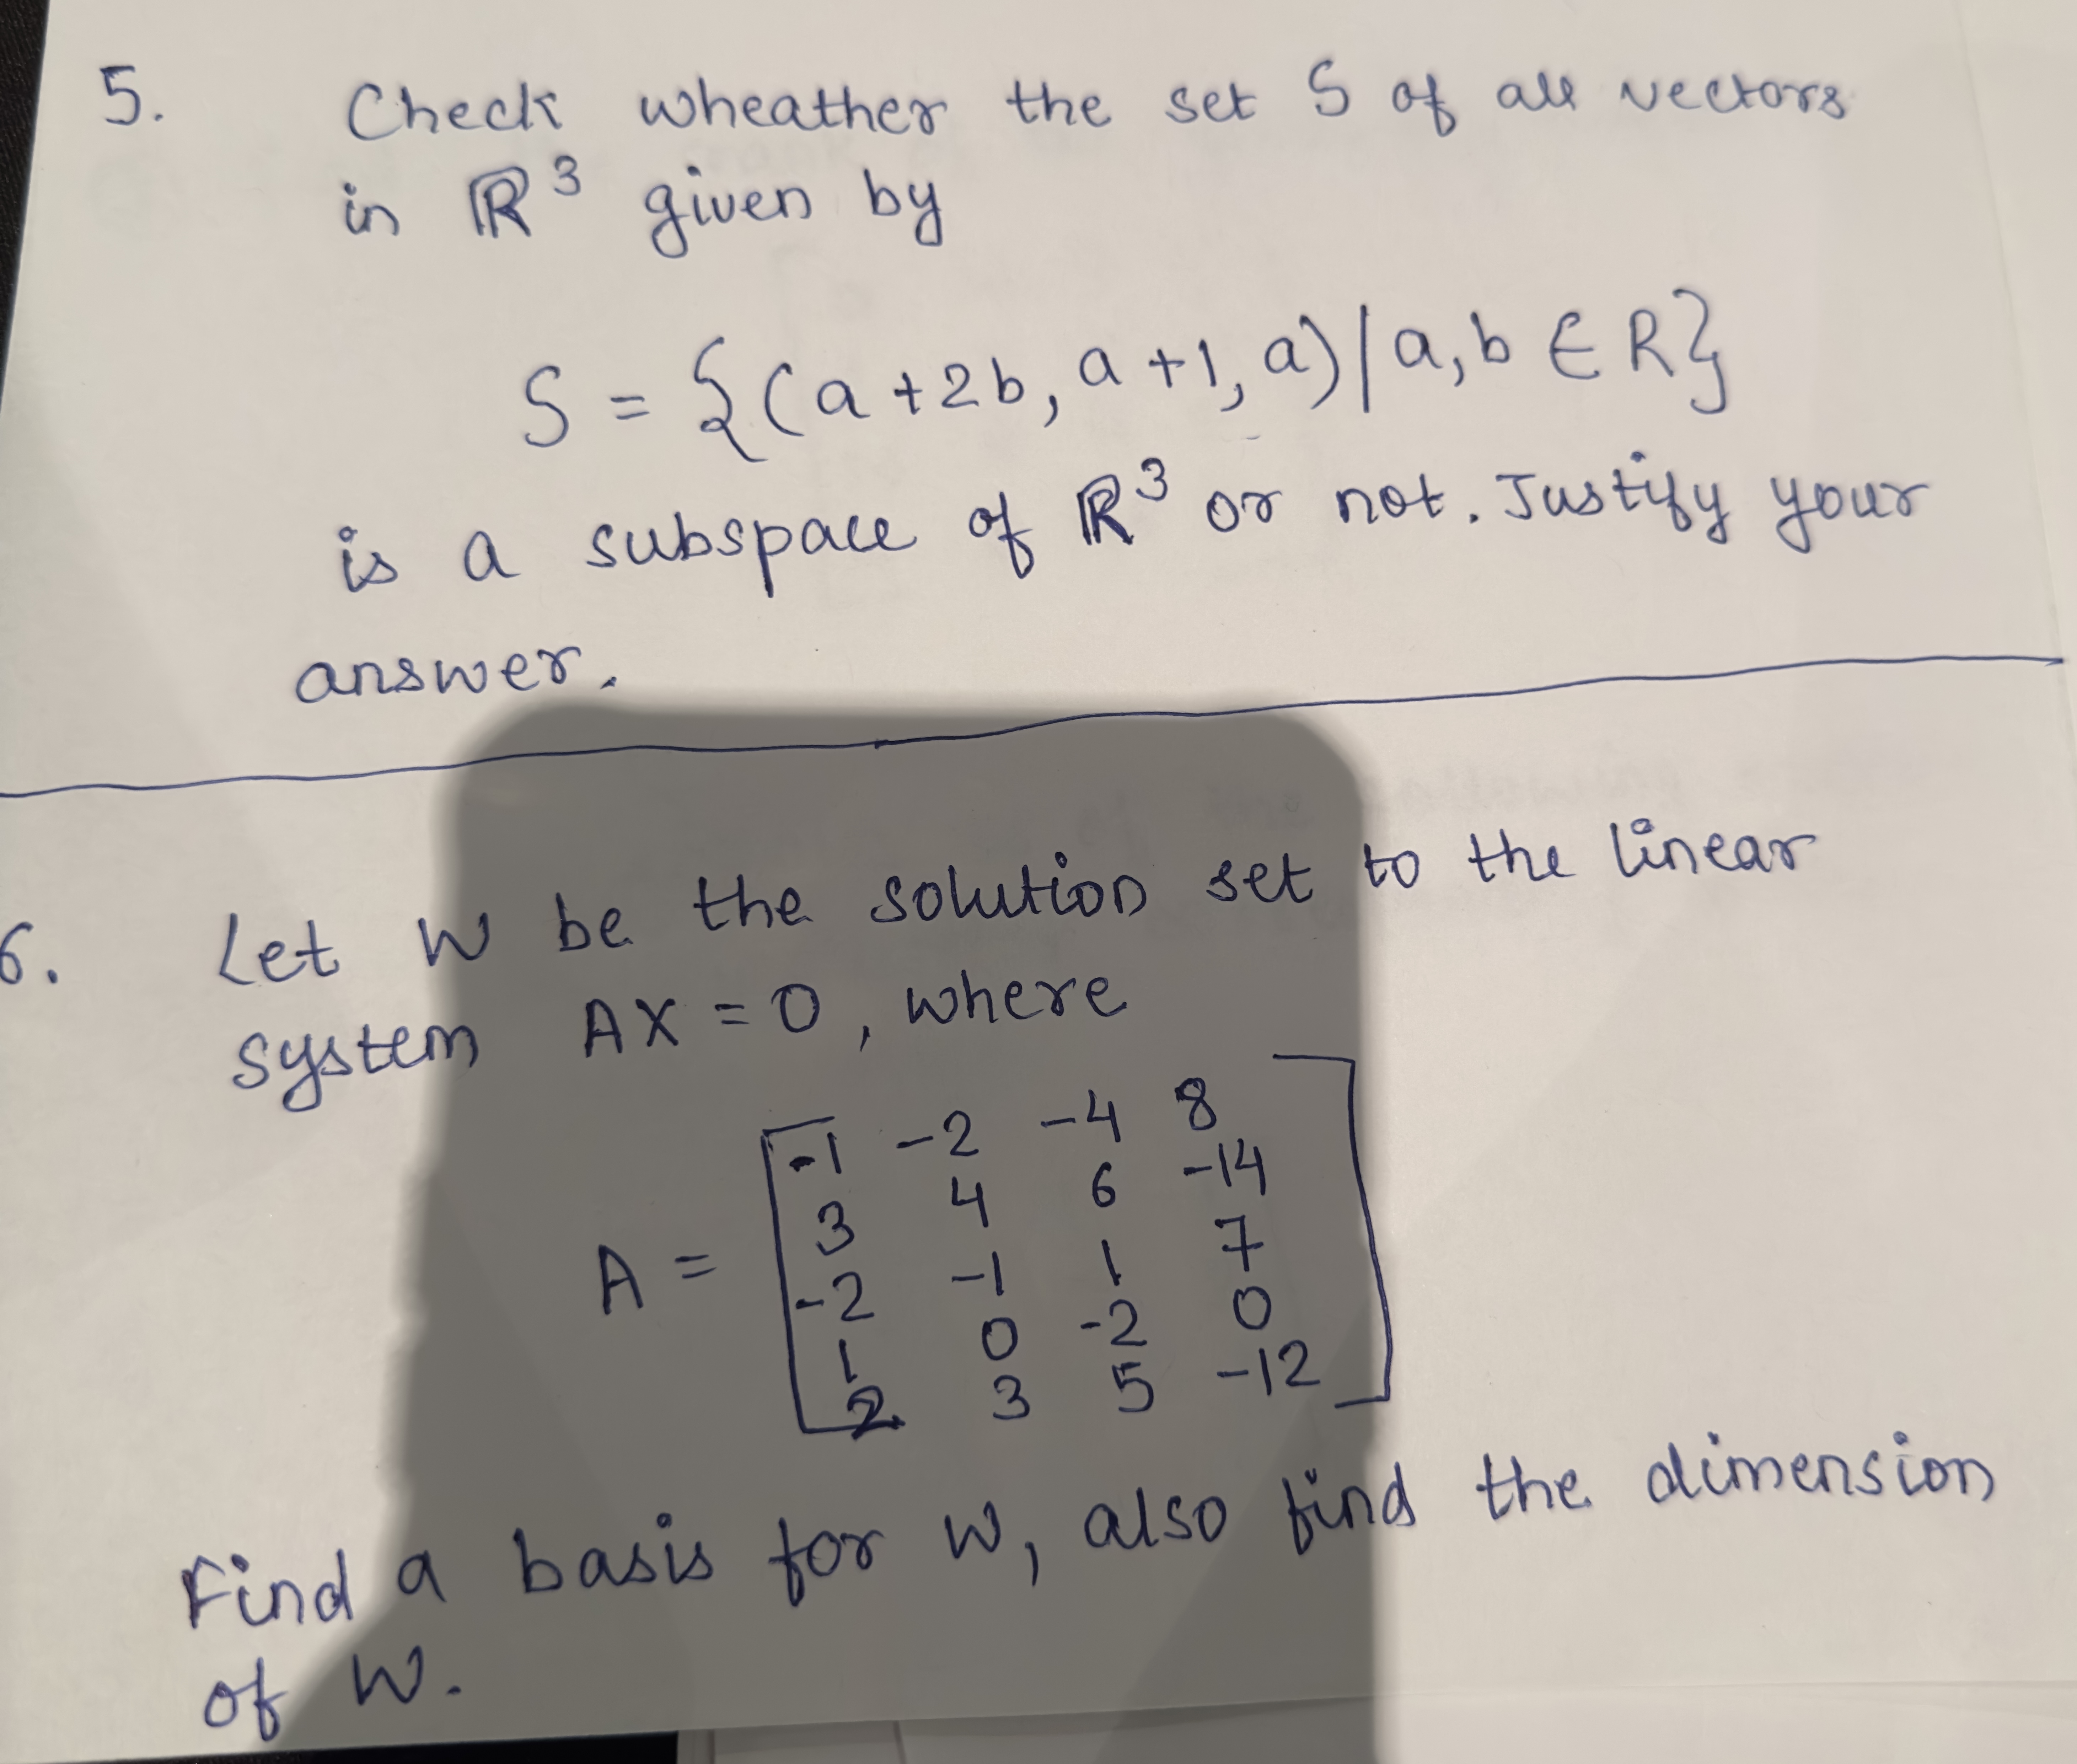 5. Check wheather the set S of all vectors
in ℝ³ given by
S = {(a+2b, a+1, a) | a, b ∈ R}
is a subspace of ℝ³ or not. Justify your
answer.
6. Let W be the solution set to the linear
system AX = 0, where
-1 -2 -4 8
3 4 6 -14
A = -2 -1 1 7
1 0 -2 0
2 3 5 -12
Find a basis for W, also find the dimension
of W.